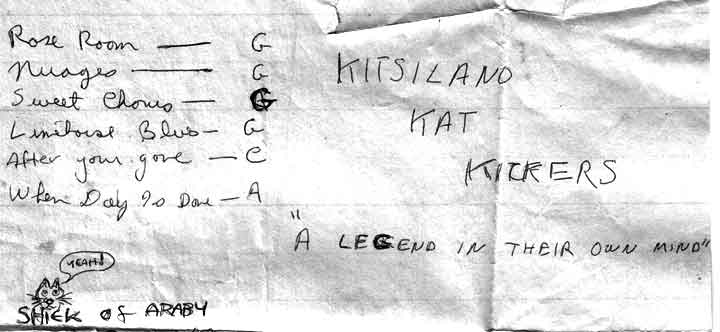 Rose Room — G
Nuages — G
Sweet Chorus — G
Limehouse Blues — G
After your gone — C
When Day Is Done — A
KITSILANO
KAT
KICKERS
"A LEGEND IN THEIR OWN MIND"
YEAH!
SHIEK of ARABY